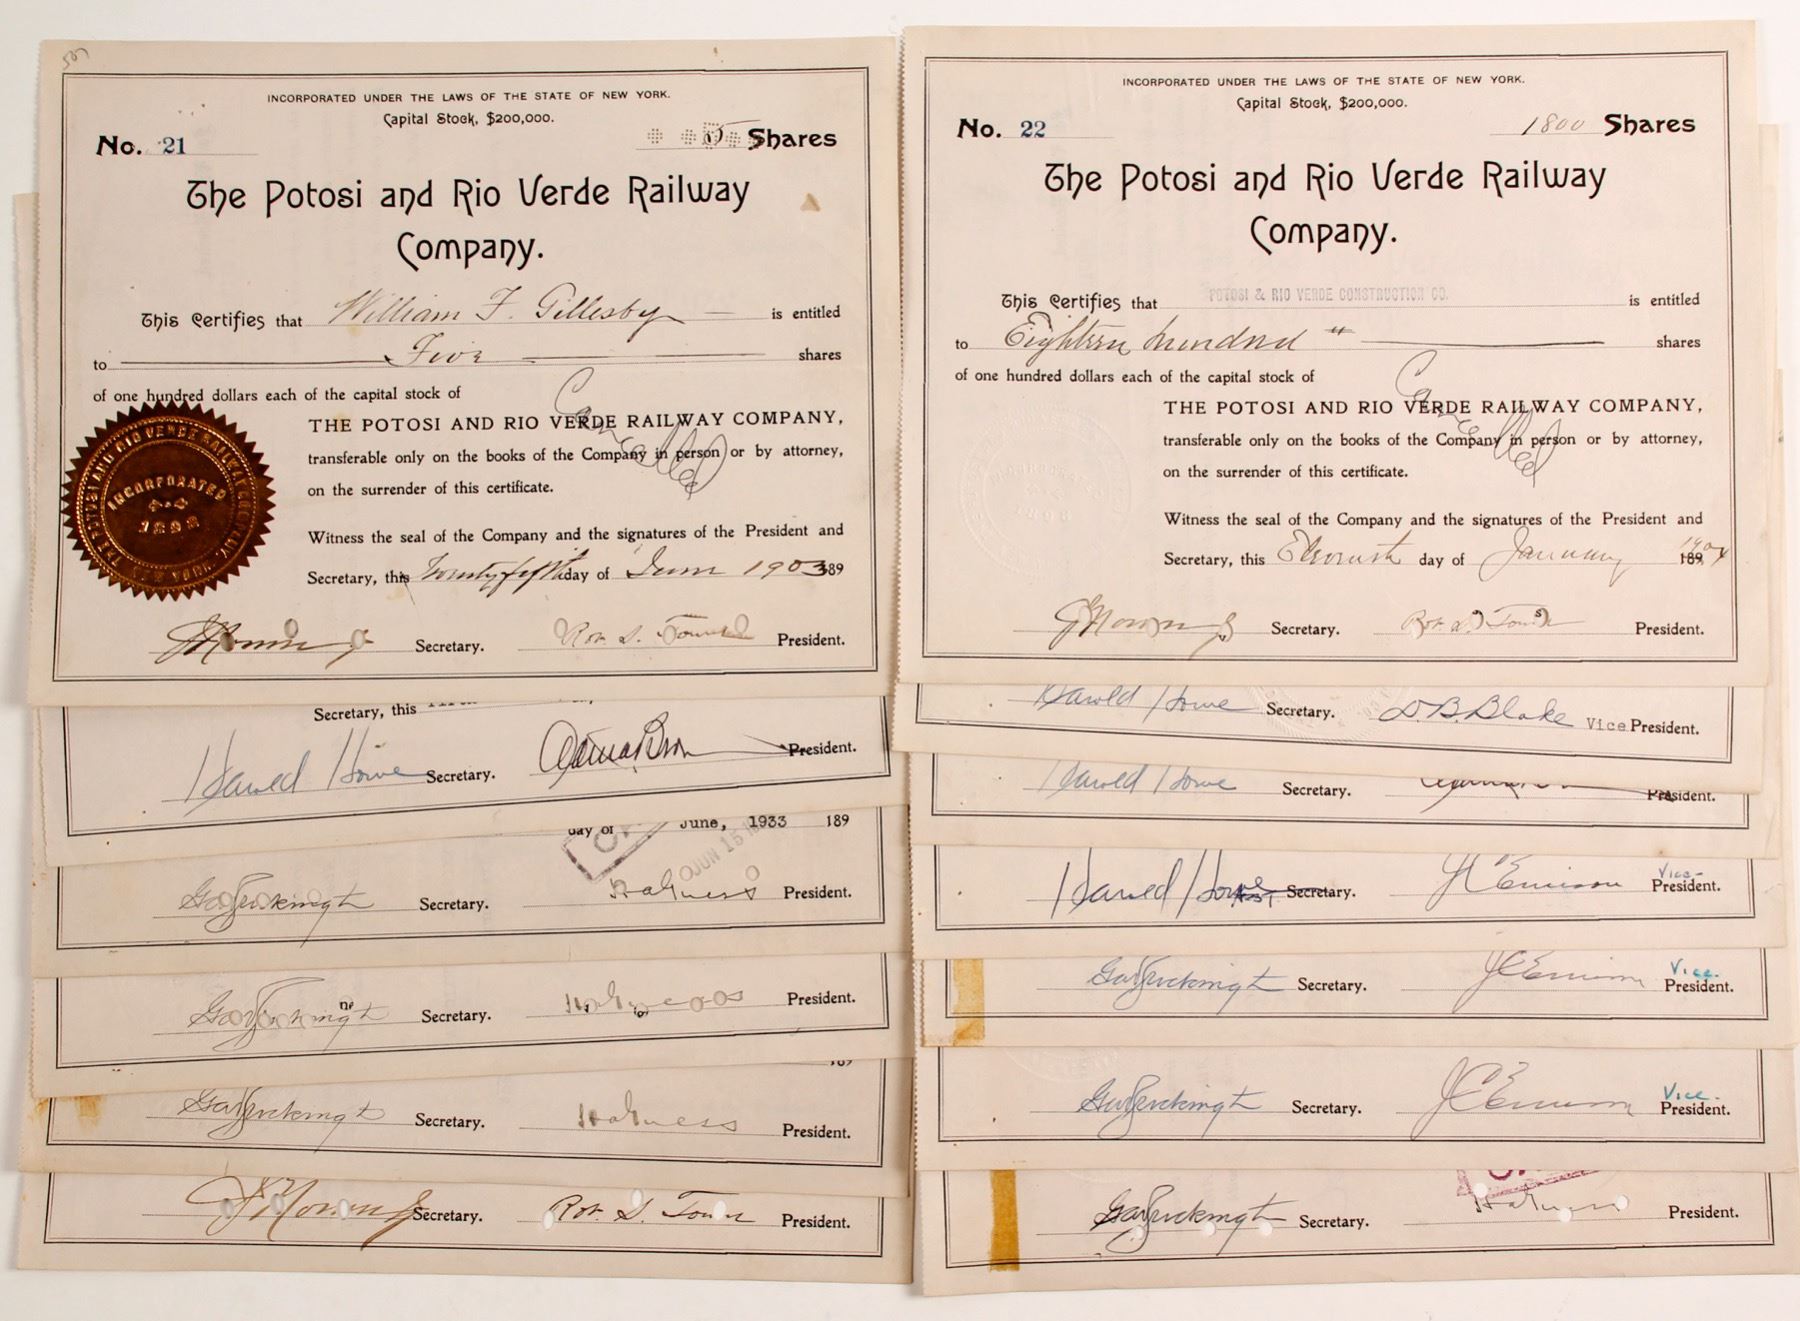 507
INCORPORATED UNDER THE LAWS OF THE STATE OF NEW YORK.
Capital Stock, $200,000.
No. 21 5 Shares
The Potosi and Rio Verde Railway
Company.
This Certifies that William F. Gillesby is entitled
to Five shares
of one hundred dollars each of the capital stock of
THE POTOSI AND RIO VERDE RAILWAY COMPANY,
Cancelled
transferable only on the books of the Company in person or by attorney,
on the surrender of this certificate.
INCORPORATED
1898
Witness the seal of the Company and the signatures of the President and
Secretary, this Twentyfifth day of June 1903 189
Secretary. Rob. S. Towne President.
Secretary, this
Harold Howe Secretary. President.
day of June, 1933 189
JUN 15
Secretary. President.
Secretary. President.
189
Secretary. President.
Secretary. Rob. S. Towne President.
INCORPORATED UNDER THE LAWS OF THE STATE OF NEW YORK.
Capital Stock, $200,000.
No. 22 1800 Shares
The Potosi and Rio Verde Railway
Company.
This Certifies that POTOSI & RIO VERDE CONSTRUCTION CO. is entitled
to Eighteen hundred shares
of one hundred dollars each of the capital stock of
THE POTOSI AND RIO VERDE RAILWAY COMPANY,
Cancelled
transferable only on the books of the Company in person or by attorney,
on the surrender of this certificate.
1898
Witness the seal of the Company and the signatures of the President and
Secretary, this Eleventh day of January 1904 189
Secretary. Rob. S. Towne President.
Harold Howe Secretary. D.B. Blake Vice President.
Harold Howe Secretary. President.
Harold Howe Asst Secretary. Vice- President.
Secretary. Vice. President.
Secretary. Vice. President.
Secretary. President.